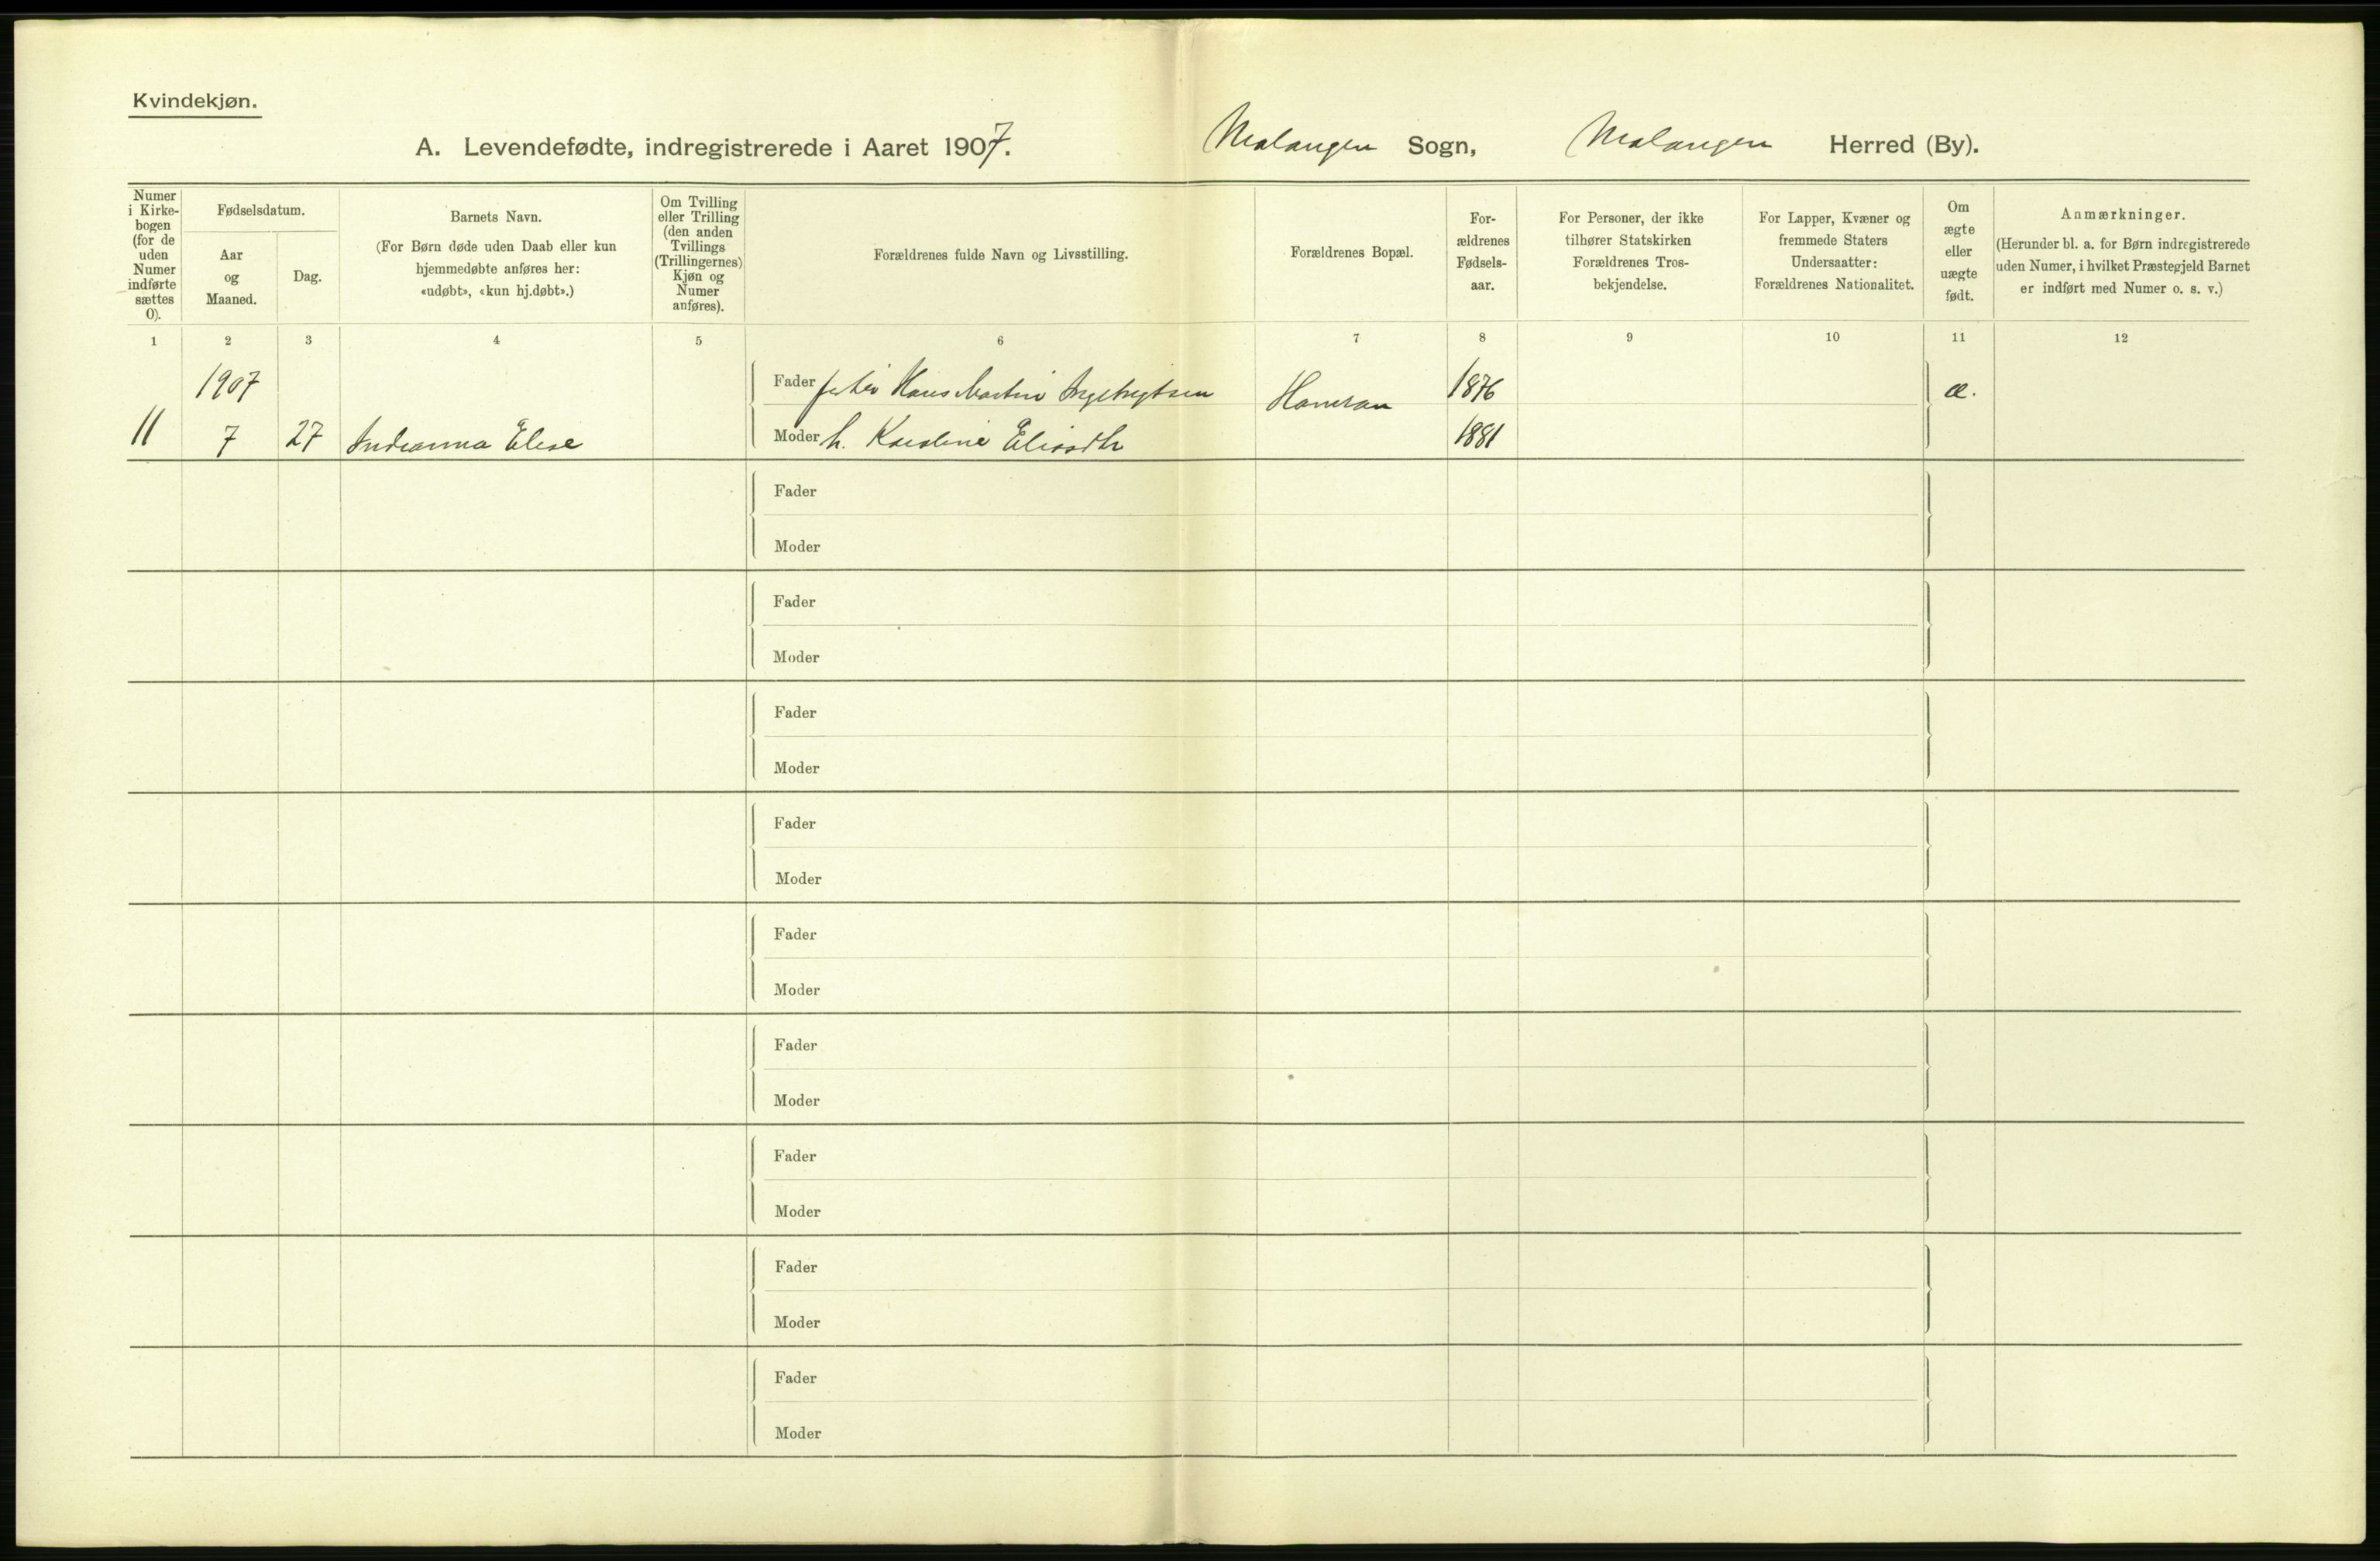 Kvindekjøn.
A. Levendefødte, indregistrerede i Aaret 1907.
Malangen Sogn, Malangen Herred (By).
Numer i Kirke-bogen (for de uden Numer indførte sættes 0).
Fødselsdatum.
Aar og Maaned.
Dag.
Barnets Navn.
(For Børn døde uden Daab eller kun
hjemmedøbte anføres her:
«udøbt», «kun hj.døbt».)
Om Tvilling
eller Trilling
(den anden
Tvillings
(Trillingernes)
Kjøn og
Numer
anføres).
Forældrenes fulde Navn og Livsstilling.
Forældrenes Bopæl.
For-
ældrenes
Fødsels-
aar.
For Personer, der ikke
tilhører Statskirken
Forældrenes Tros-
bekjendelse.
For Lapper, Kvæner og
fremmede Staters
Undersaatter:
Forældrenes Nationalitet.
Om
ægte
eller
uægte
født.
Anmærkninger.
(Herunder bl. a. for Børn indregistrerede
uden Numer, i hvilket Præstegjeld Barnet
er indført med Numer o. s. v.)
1 2 3 4 5 6 7 8 9 10 11 12
1907 Fader Hans Martin 1876 æ.
11 7 27 Indianna Elise Moder h. Karoline 1881
Fader
Moder
Fader
Moder
Fader
Moder
Fader
Moder
Fader
Moder
Fader
Moder
Fader
Moder
Fader
Moder
Fader
Moder